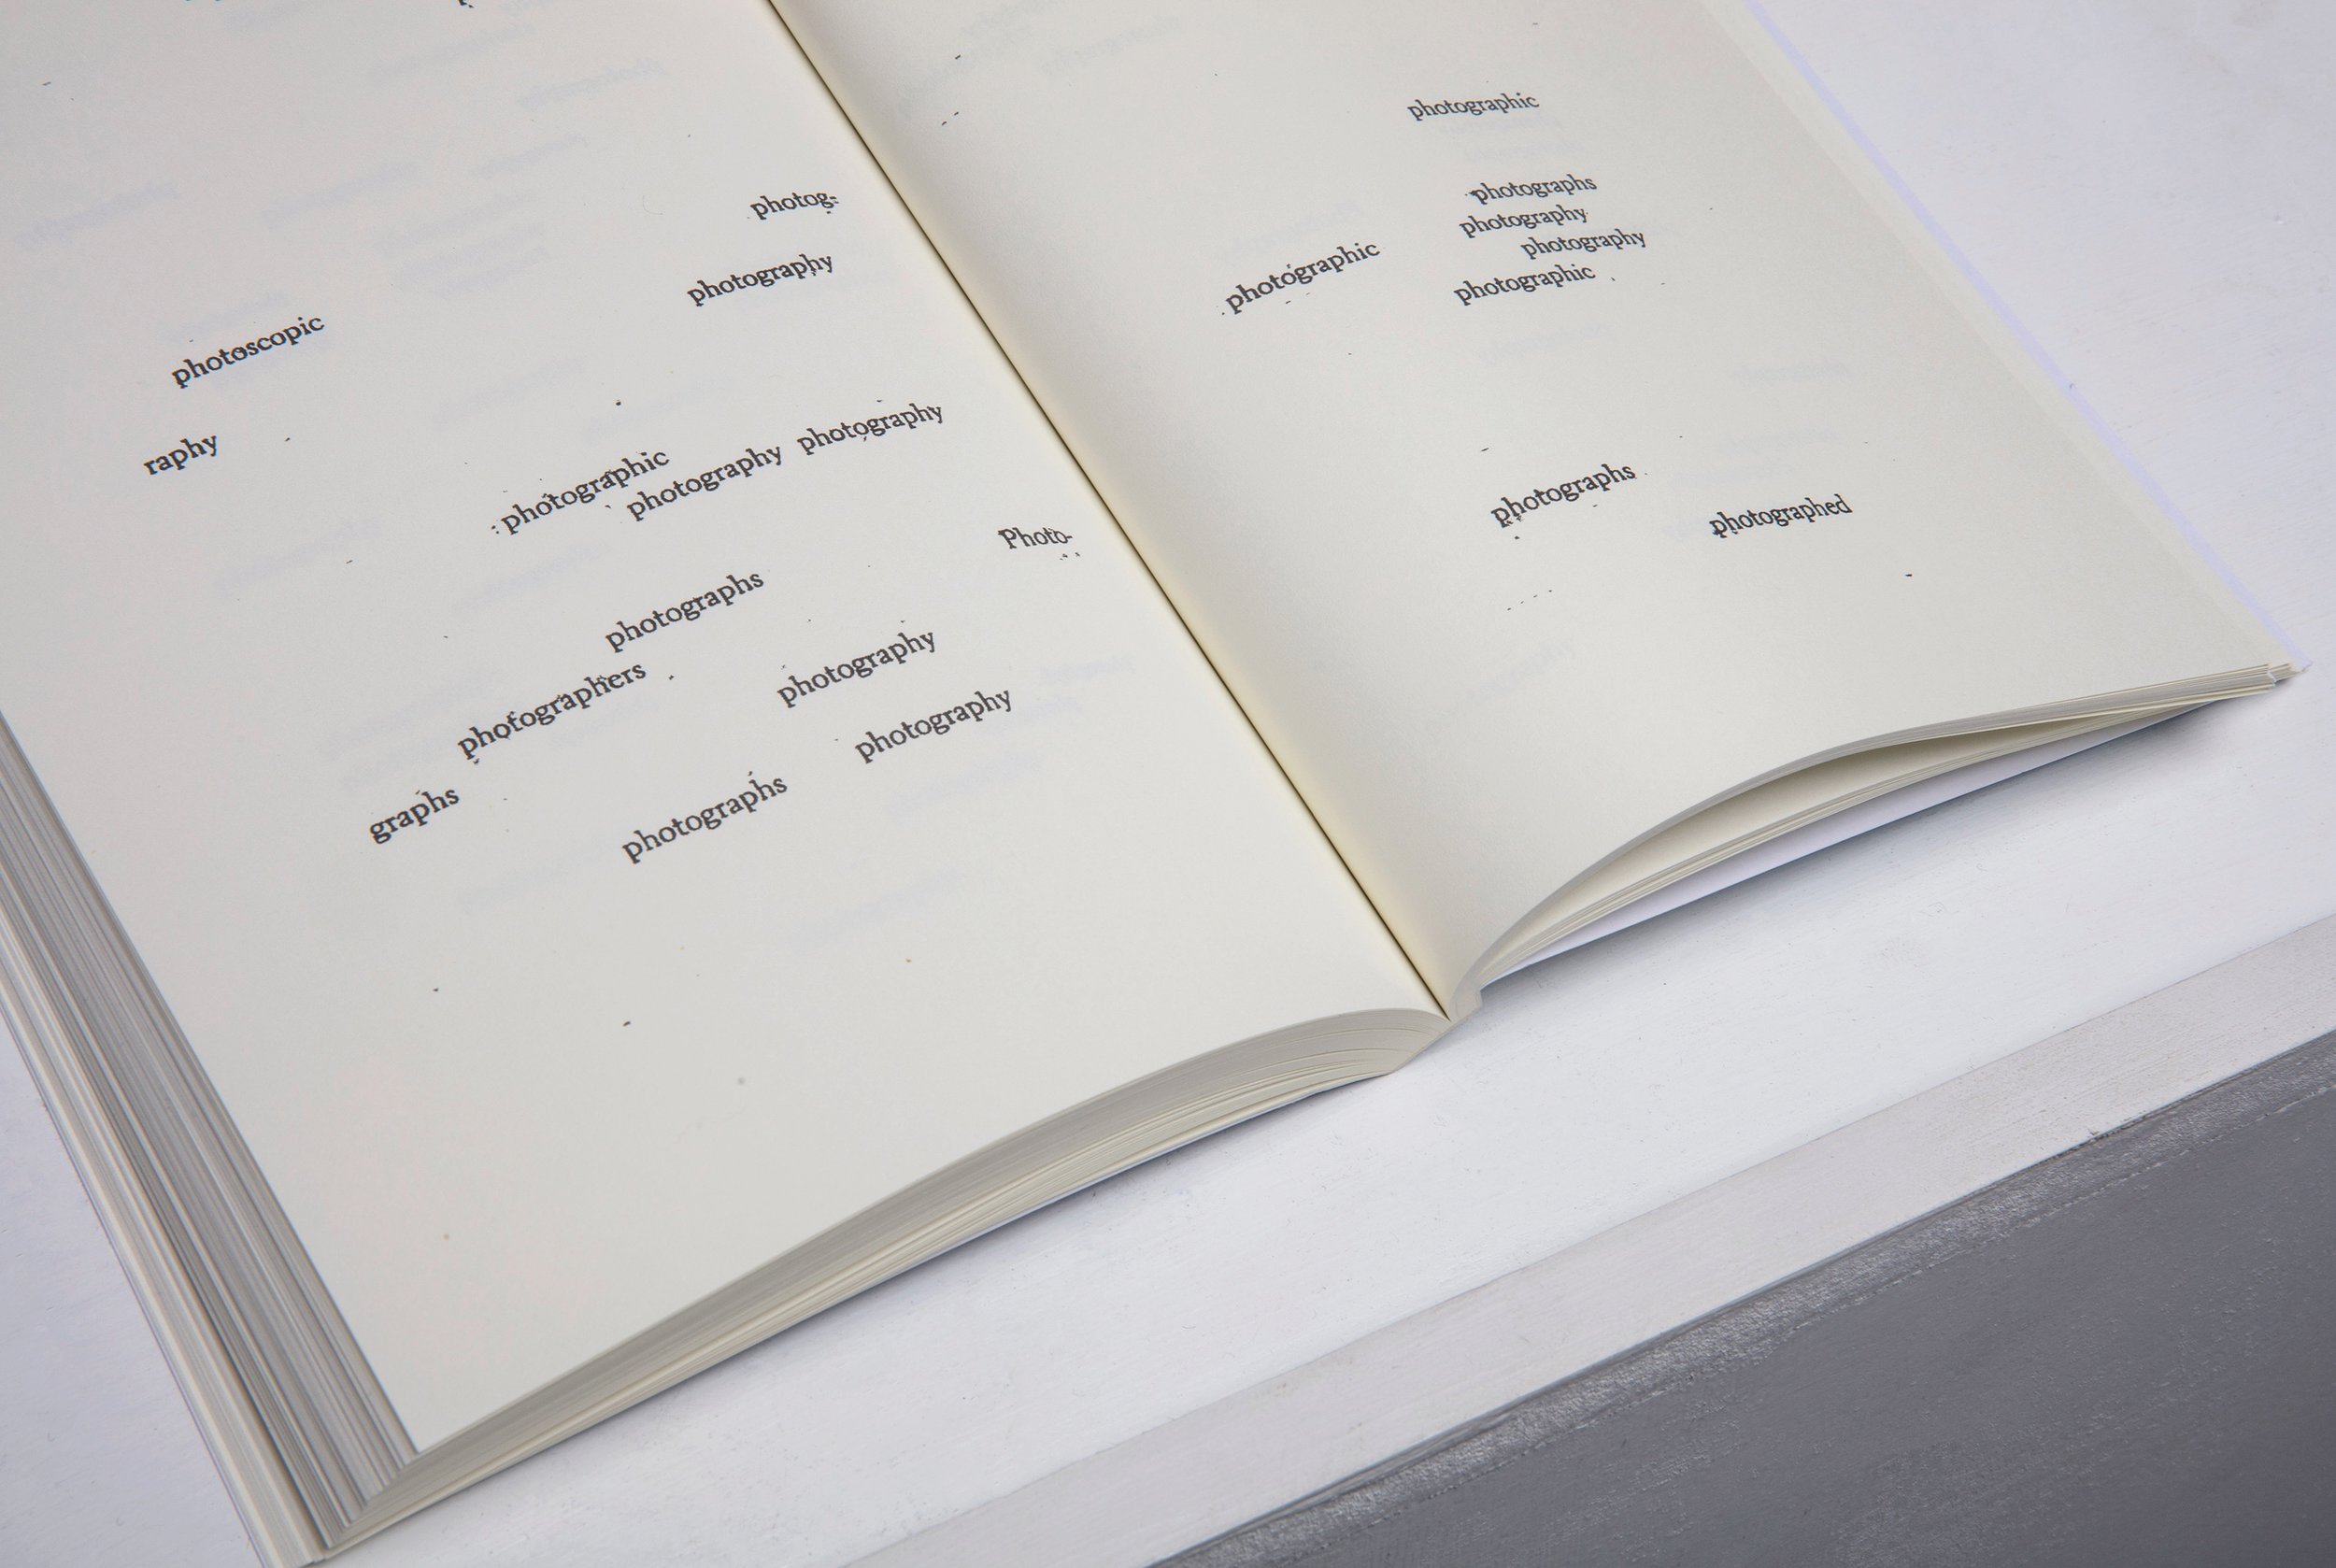 photoscopic photog-
raphy photography
photographic
photography photography
photographs
photographers Photo-
graphs
photography
photographs photography
photographic
photographs
photographic photography
photography
photographic
photographs
photographed